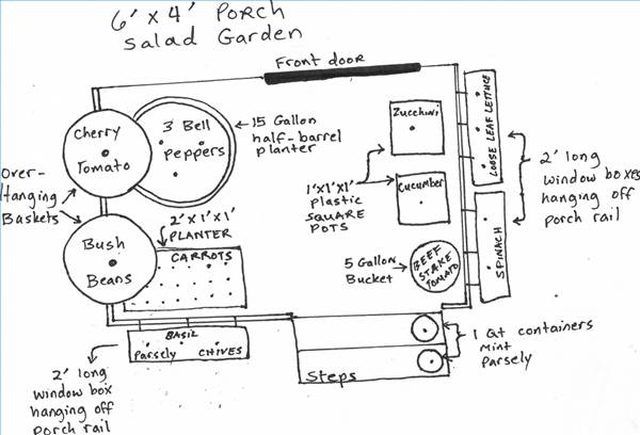 6' x 4' PORCH
Salad Garden
Front door
Cherry
Tomato
3 Bell
Peppers
15 Gallon
half-barrel
planter
Zucchini
LOOSE LEAF LETTUCE
2' long
window boxes
hanging off
porch rail
Over-
Hanging
Baskets
1'x1'x1'
plastic
SQUARE
POTS
Cucumber
2'x1'x1'
PLANTER
Bush
Beans
CARROTS
5 Gallon
Bucket
BEEF
STAKE
TOMATO
SPINACH
BASIL
Parsely CHIVES
2' long
window box
hanging off
porch rail
Steps
1 Qt containers
Mint
Parsely